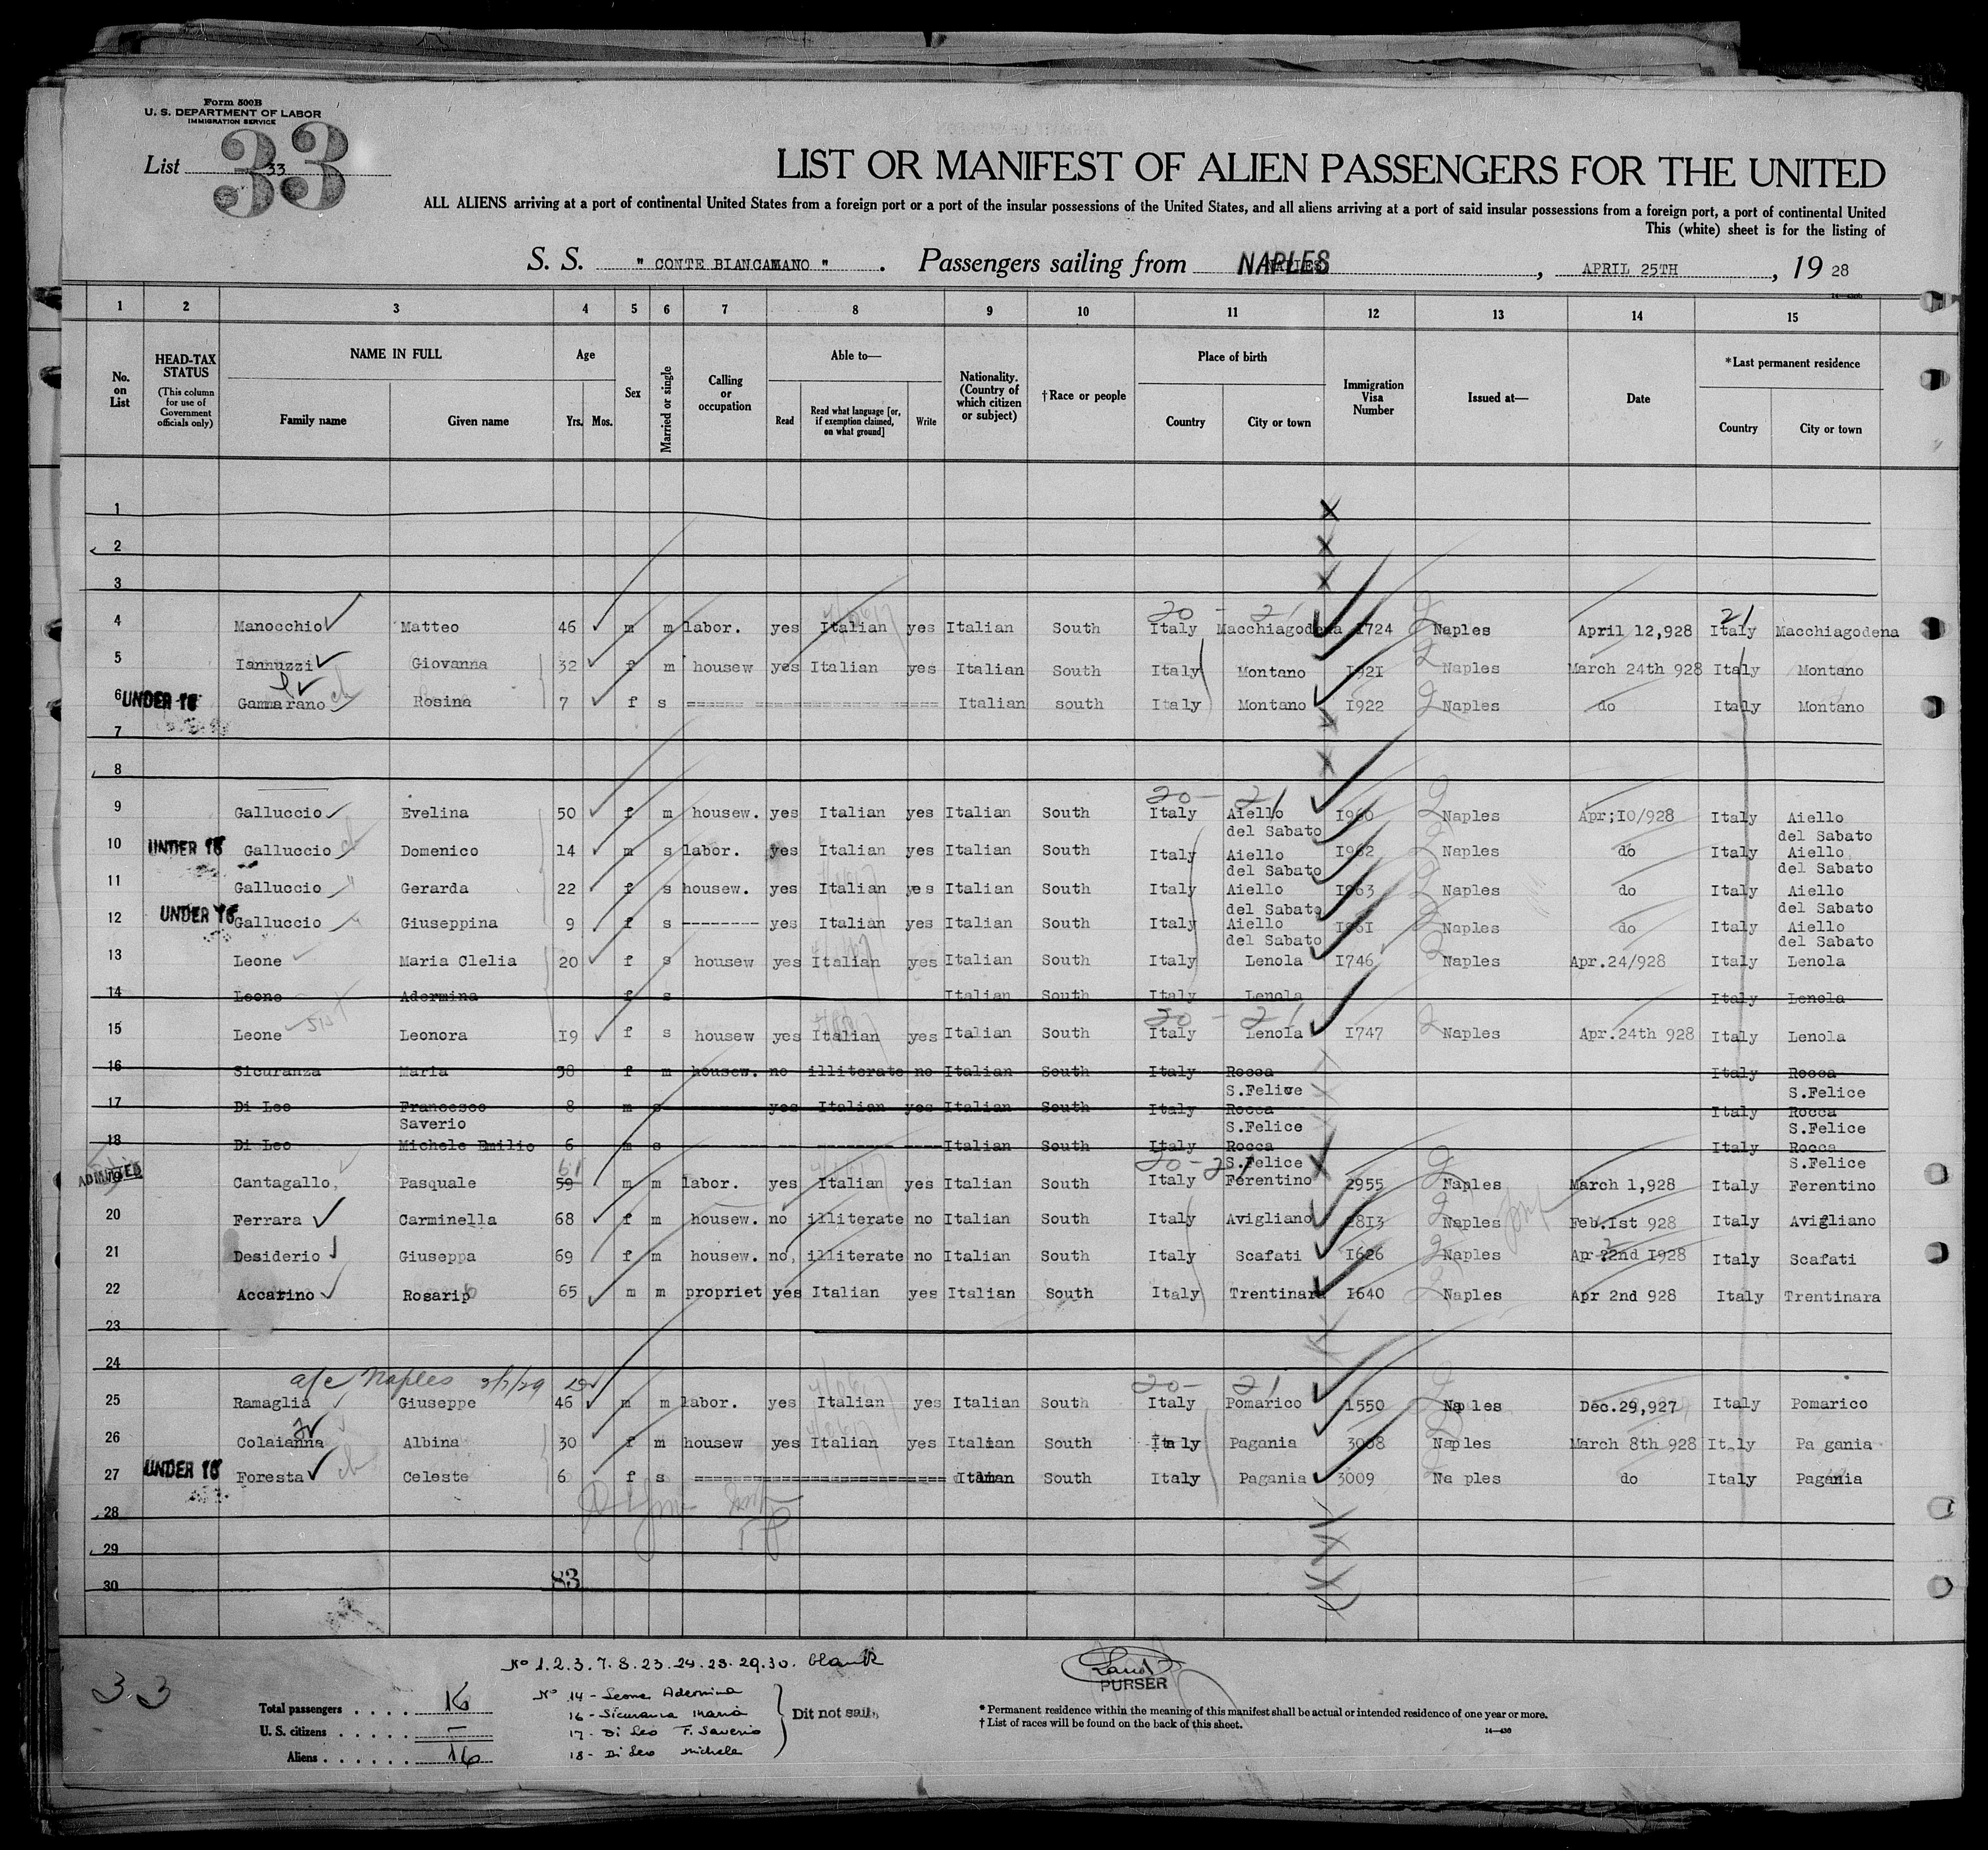 Form 500B
U. S. DEPARTMENT OF LABOR
IMMIGRATION SERVICE
List 33
33
LIST OR MANIFEST OF ALIEN PASSENGERS FOR THE UNITED
ALL ALIENS arriving at a port of continental United States from a foreign port or a port of the insular possessions of the United States, and all aliens arriving at a port of said insular possessions from a foreign port, a port of continental United
This (white) sheet is for the listing of
S. S. " CONTE BIANCAMANO " . Passengers sailing from NAPLES , APRIL 25TH , 19 28
1 2 3 4 5 6 7 8 9 10 11 12 13 14 15
No. on List
HEAD-TAX STATUS
(This column for use of Government officials only)
NAME IN FULL
Family name Given name
Age
Yrs. Mos.
Sex
Married or single
Calling or occupation
Able to—
Read
Read what language [or, if exemption claimed, on what ground]
Write
Nationality. (Country of which citizen or subject)
†Race or people
Place of birth
Country City or town
Immigration Visa Number
Issued at—
Date
*Last permanent residence
Country City or town
1
2
3
20 - 21 21
4 Manocchio Matteo 46 m m labor. yes Italian yes Italian South Italy Macchiagodena 1724 Naples April 12,928 Italy Macchiagodena
5 Iannuzzi Giovanna 32 f m housew yes Italian yes Italian South Italy Montano 1921 Naples March 24th 928 Italy Montano
6 UNDER 16 Gammarano Rosina 7 f s Italian south Italy Montano 1922 Naples do Italy Montano
7
8
20 - 21
9 Galluccio Evelina 50 f m housew. yes Italian yes Italian South Italy Aiello del Sabato 1960 Naples Apr;10/928 Italy Aiello del Sabato
10 UNDER 16 Galluccio Domenico 14 m s labor. yes Italian yes Italian South Italy Aiello del Sabato 1962 Naples do Italy Aiello del Sabato
11 Galluccio Gerarda 22 f s housew. yes Italian yes Italian South Italy Aiello del Sabato 1963 Naples do Italy Aiello del Sabato
12 UNDER 16 Galluccio Giuseppina 9 f s -------- yes Italian yes Italian South Italy Aiello del Sabato 1961 Naples do Italy Aiello del Sabato
13 Leone Maria Clelia 20 f s housew yes Italian yes Italian South Italy Lenola 1746 Naples Apr.24/928 Italy Lenola
14 Leone Adermina f s Italian South Italy Lenola Italy Lenola
20 - 21
15 Leone Leonora 19 f s housew yes Italian yes Italian South Italy Lenola 1747 Naples Apr.24th 928 Italy Lenola
16 Sicuranza Maria 38 f m housew. no illiterate no Italian South Italy Rocca S.Felice Italy Rocca S.Felice
17 Di Leo Francesco Saverio 8 m s yes Italian yes Italian South Italy Rocca S.Felice Italy Rocca S.Felice
18 Di Leo Michele Emilio 6 m s Italian South Italy Rocca S.Felice Italy Rocca S.Felice
61 20 - 21
ADMITTED Cantagallo, Pasquale 59 m m labor. yes Italian yes Italian South Italy Ferentino 2955 Naples March 1,928 Italy Ferentino
20 Ferrara Carminella 68 f m housew. no illiterate no Italian South Italy Avigliano 2813 Naples Feb.1st 928 Italy Avigliano
21 Desiderio Giuseppa 69 f m housew. no, illiterate no Italian South Italy Scafati 1626 Naples Apr 22nd 1928 Italy Scafati
22 Accarino Rosario 65 m m propriet yes Italian yes Italian South Italy Trentinara 1640 Naples Apr 2nd 928 Italy Trentinara
23
24
a/c Naples 2/7/29
20- 21
25 Ramaglia Giuseppe 46 m m labor. yes Italian yes Italian South Italy Pomarico 1550 Naples Dec.29,927 Italy Pomarico
26 Colaianna Albina 30 f m housew yes Italian yes Italian South Italy Pagania 3008 Naples March 8th 928 Italy Pa gania
27 UNDER 16 Foresta Celeste 6 f s Italian South Italy Pagania 3009 Na ples do Italy Pagania
28
29
30 83
33
No 1.2.3.7.8.23.24.28.29.30. blank
Total passengers . . . . 16
U. S. citizens . . . . . –
Aliens . . . . . . 16
No 14 - Leone Adermina
16 - Sicuranza Maria
17 - Di Leo F. Saverio
18 - Di Leo Michele
Dit not sail,
PURSER
* Permanent residence within the meaning of this manifest shall be actual or intended residence of one year or more.
† List of races will be found on the back of this sheet.
14—430